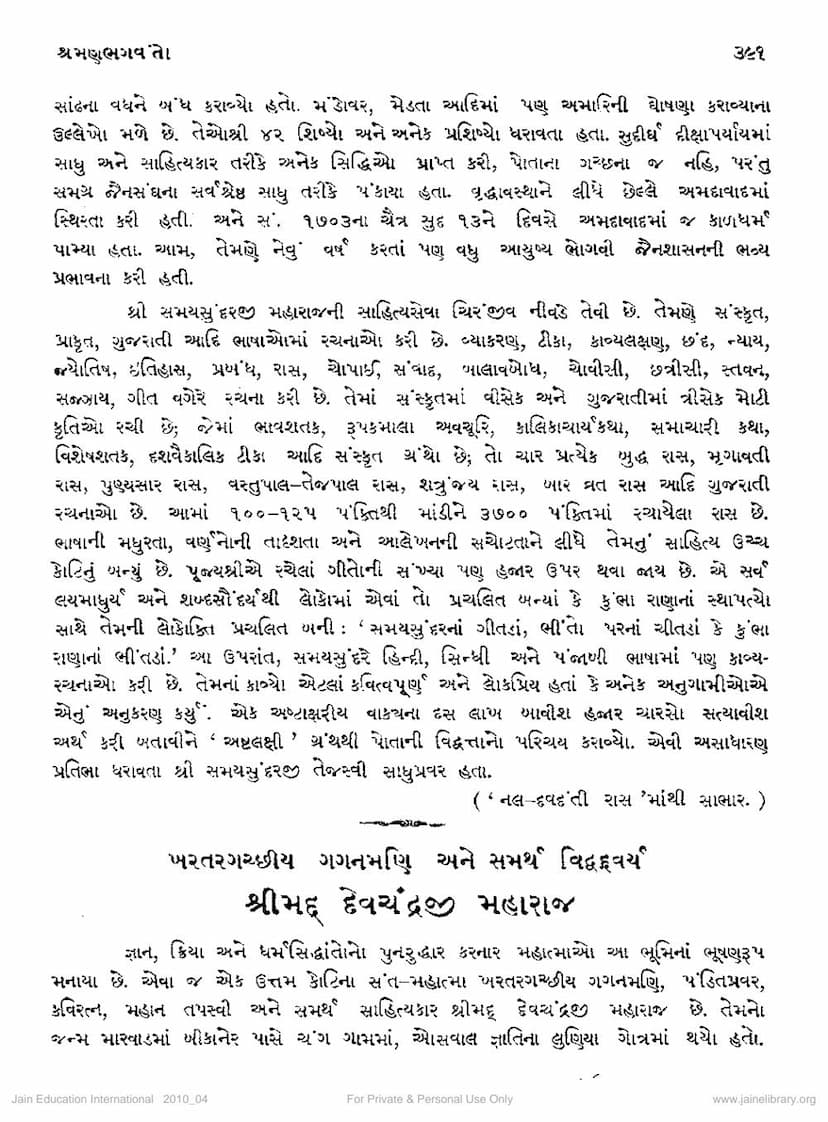 શ્રમણભગવંતો
૩૯૧
સાંઢના વધને બંધ કરાવ્યો હતો. મંડોવર, મેડતા આદિમાં પણ અમારિની ઘોષણા કરાવ્યાના
ઉલ્લેખો મળે છે. તેઓશ્રી ૪૨ શિષ્યો અને અનેક પ્રશિષ્યો ધરાવતા હતા. સુદીર્ઘ દીક્ષાપર્યાયમાં
સાધુ અને સાહિત્યકાર તરીકે અનેક સિદ્ધિઓ પ્રાપ્ત કરી, પોતાના ગચ્છના જ નહિ, પરંતુ
સમગ્ર જૈનસંઘના સર્વશ્રેષ્ઠ સાધુ તરીકે પંકાયા હતા. વૃદ્ધાવસ્થાને લીધે છેલ્લે અમદાવાદમાં
સ્થિરતા કરી હતી. અને સં. ૧૭૦૩ના ચૈત્ર સુદ ૧૩ને દિવસે અમદાવાદમાં જ કાળધર્મ
પામ્યા હતા. આમ, તેમણે નેવું વર્ષ કરતાં પણ વધુ આયુષ્ય ભોગવી જૈનશાસનની ભવ્ય
પ્રભાવના કરી હતી.
શ્રી સમયસુંદરજી મહારાજની સાહિત્યસેવા ચિરંજીવ નીવડે તેવી છે. તેમણે સંસ્કૃત,
પ્રાકૃત, ગુજરાતી આદિ ભાષાઓમાં રચનાઓ કરી છે. વ્યાકરણ, ટીકા, કાવ્યલક્ષણ, છંદ, ન્યાય,
જ્યોતિષ, ઇતિહાસ, પ્રબંધ, રાસ, ચોપાઈ, સંવાદ, બાલાવબોધ, ચોવીસી, છત્રીસી, સ્તવન,
સજ્ઝાય, ગીત વગેરે રચના કરી છે. તેમાં સંસ્કૃતમાં વીસેક અને ગુજરાતીમાં ત્રીસેક મોટી
કૃતિઓ રચી છે; જેમાં ભાવશતક, રૂપકમાલા અવચૂરિ, કાલિકાચાર્યકથા, સમાચારી કથા,
વિશેષશતક, દશવૈકાલિક ટીકા આદિ સંસ્કૃત ગ્રંથો છે; તો ચાર પ્રત્યેક બુદ્ધ રાસ, મૃગાવતી
રાસ, પુણ્યસાર રાસ, વસ્તુપાલ–તેજપાલ રાસ, શત્રુંજય રાસ, બાર વ્રત રાસ આદિ ગુજરાતી
રચનાઓ છે. આમાં ૧૦૦–૧૨૫ પંક્તિથી માંડીને ૩૭૦૦ પંક્તિમાં રચાયેલા રાસ છે.
ભાષાની મધુરતા, વર્ણનોની તાદૃશતા અને આલેખનની સચોટતાને લીધે તેમનું સાહિત્ય ઉચ્ચ
કોટિનું બન્યું છે. પૂજ્યશ્રીએ રચેલાં ગીતોની સંખ્યા પણ હજાર ઉપર થવા જાય છે. એ સર્વ
લયમાધુર્ય અને શબ્દસૌંદર્યથી લોકોમાં એવાં તો પ્રચલિત બન્યાં કે કુંભા રાણાનાં સ્થાપત્યો
સાથે તેમની લોકોક્તિ પ્રચલિત બની : ‘સમયસુંદરનાં ગીતડાં, ભીંતો પરનાં ચીતડાં કે કુંભા
રાણાનાં ભીંતડાં.’ આ ઉપરાંત, સમયસુંદરે હિન્દી, સિન્ધી અને પંજાબી ભાષામાં પણ કાવ્ય-
રચનાઓ કરી છે. તેમનાં કાવ્યો એટલાં કવિત્વપૂર્ણ અને લોકપ્રિય હતાં કે અનેક અનુગામીઓએ
એનું અનુકરણ કર્યું. એક અષ્ટાક્ષરીય વાક્યના દસ લાખ બાવીશ હજાર ચારસો સત્યાવીશ
અર્થ કરી બતાવીને ‘ અષ્ટલક્ષી ’ ગ્રંથથી પોતાની વિદ્વત્તાનો પરિચય કરાવ્યો. એવી અસાધારણ
પ્રતિભા ધરાવતા શ્રી સમયસુંદરજી તેજસ્વી સાધુપ્રવર હતા.
( ‘ નલ–દવદંતી રાસ ’માંથી સાભાર. )
ખરતરગચ્છીય ગગનમણિ અને સમર્થ વિદ્વદ્વર્ય
શ્રીમદ્ દેવચંદ્રજી મહારાજ
જ્ઞાન, ક્રિયા અને ધર્મસિદ્ધાંતોનો પુનરુદ્ધાર કરનાર મહાત્માઓ આ ભૂમિનાં ભૂષણરૂપ
મનાયા છે. એવા જ એક ઉત્તમ કોટિના સંત–મહાત્મા ખરતરગચ્છીય ગગનમણિ, પંડિતપ્રવર,
કવિરત્ન, મહાન તપસ્વી અને સમર્થ સાહિત્યકાર શ્રીમદ્ દેવચંદ્રજી મહારાજ છે. તેમનો
જન્મ મારવાડમાં બીકાનેર પાસે ચંગ ગામમાં, ઓસવાલ જ્ઞાતિના લુણિયા ગોત્રમાં થયો હતો.
Jain Education International 2010_04
For Private & Personal Use Only
www.jainelibrary.org